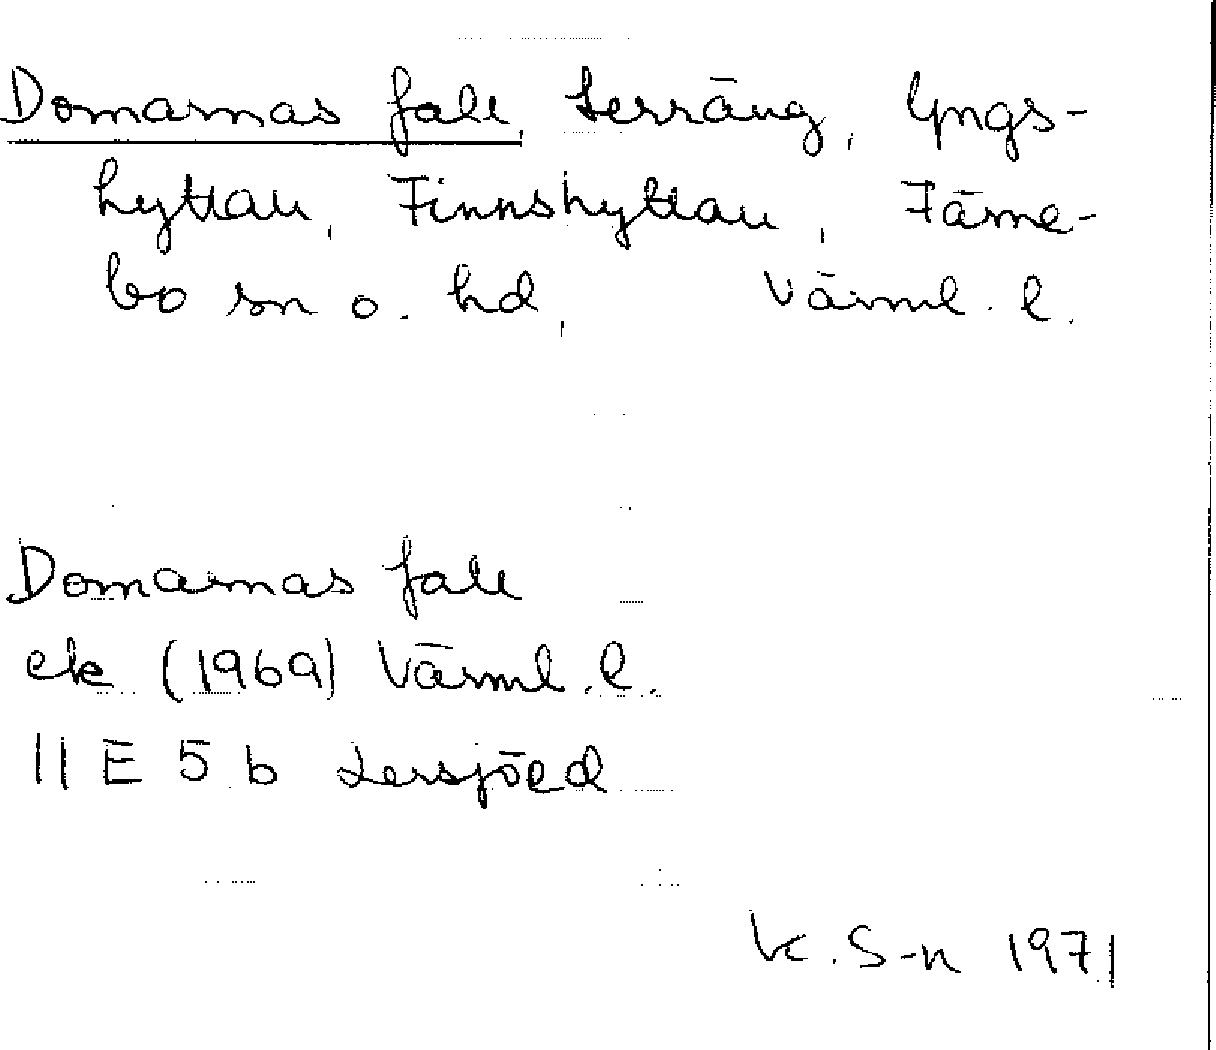 Domarnas fall, terräng, Yngs-
hyttan, Finnshyttan, Färne-
bo sn o. hd, Värml. l.
Domarnas fall
ek (1969) Värml. l.
11 E 5 b Lersjöed
K. S-n 1971